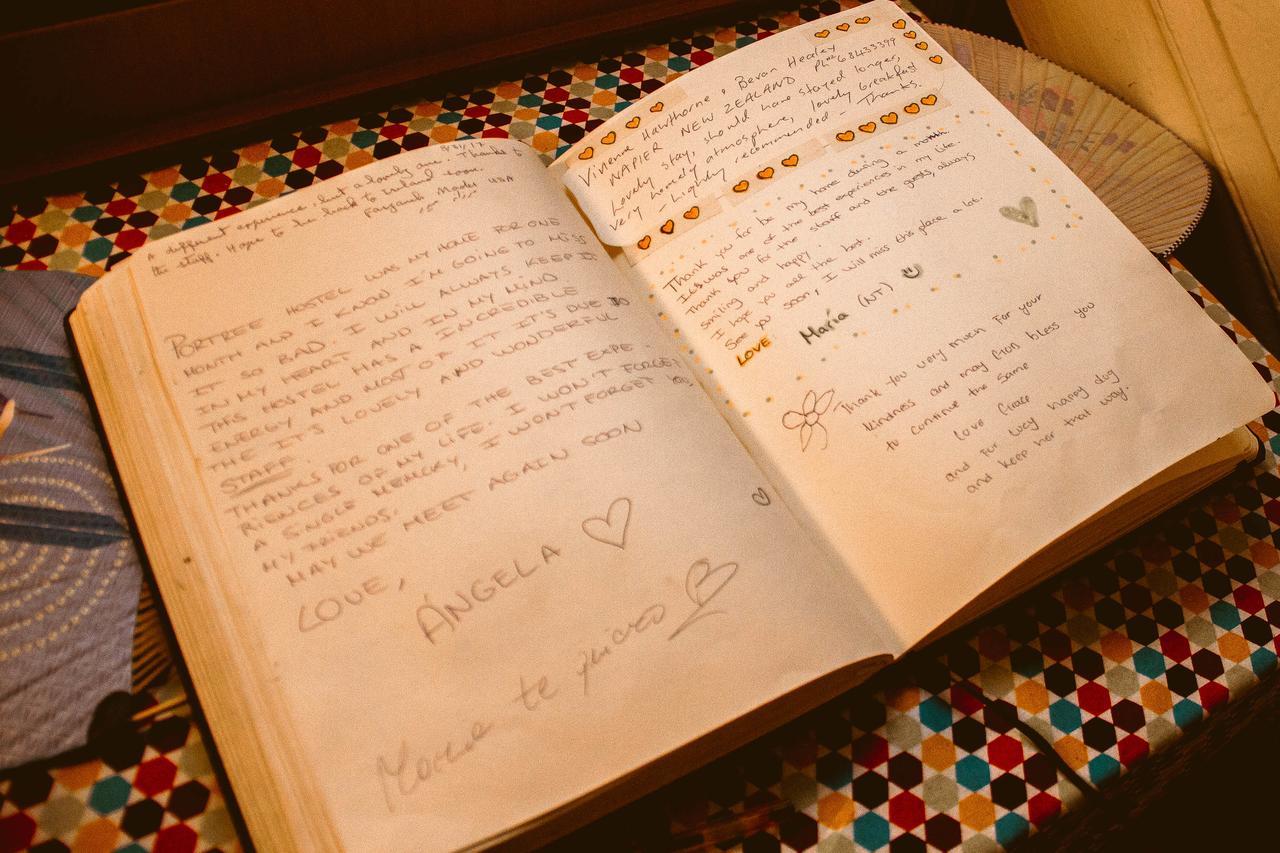 A different experience but a lovely one. Thanks to
the staff. Hope to be back to Ireland soon.
USA
PORTREE HOSTEL WAS MY HOME FOR ONE
MONTH AND I KNOW I'M GOING TO MISS
IT SO BAD. I WILL ALWAYS KEEP IT
IN MY HEART AND IN MY MIND
THIS HOSTEL HAS A INCREDIBLE
ENERGY AND MOST OF IT IT'S DUE TO
THE IT'S LOVELY AND WONDERFUL
STAFF.
THANKS FOR ONE OF THE BEST EXPE-
RIENCES OF MY LIFE. I WON'T FORGET
A SINGLE MEMORY, I WON'T FORGET YOU
MY FRIENDS.
MAY WE MEET AGAIN SOON
LOVE,
ÁNGELA
te quiero
Vivienne Hawthorne & Bevan Healey
NAPIER NEW ZEALAND Ph 68433399
Lovely stay, should have stayed longer,
very homely atmosphere, lovely breakfast
- highly recommended - Thanks.
Thank you for be my home during a month.
It was one of the best experiences in my life.
Thank you for the staff and the guests, always
smiling and happy.
I hope you all the best.
See you soon, I will miss this place a lot.
LOVE
María (NT)
Thank you very much for your
kindness and may God bless you
to continue the same
love Grace
and for way happy dog
and keep her that way.